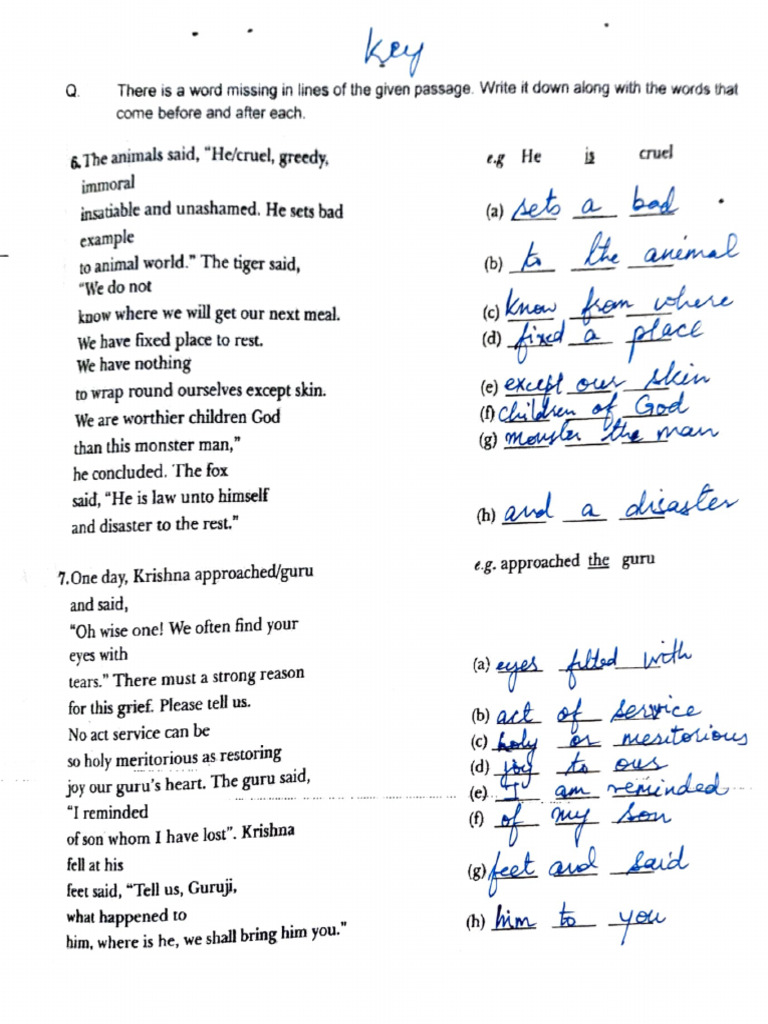 Key
Q. There is a word missing in lines of the given passage. Write it down along with the words that
come before and after each.
6. The animals said, "He/cruel, greedy, e.g He is cruel
immoral
insatiable and unashamed. He sets bad (a) sets a bad
example
to animal world." The tiger said, (b) to the animal
"We do not
know where we will get our next meal. (c) know from where
We have fixed place to rest. (d) fixed a place
We have nothing
to wrap round ourselves except skin. (e) except our skin
We are worthier children God (f) children of God
than this monster man," (g) monster the man
he concluded. The fox
said, "He is law unto himself
and disaster to the rest." (h) and a disaster
7. One day, Krishna approached/guru e.g. approached the guru
and said,
"Oh wise one! We often find your
eyes with (a) eyes filled with
tears." There must a strong reason
for this grief. Please tell us.
No act service can be (b) act of service
so holy meritorious as restoring (c) holy or meritorious
joy our guru's heart. The guru said, (d) joy to our
"I reminded (e) I am reminded
of son whom I have lost". Krishna (f) of my son
fell at his
feet said, "Tell us, Guruji, (g) feet and said
what happened to
him, where is he, we shall bring him you." (h) him to you